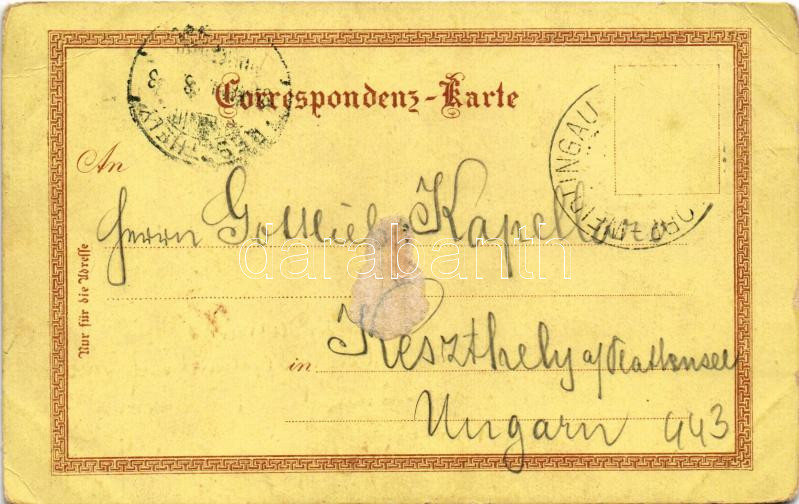 Correspondenz-Karte
An
Herrn Gottlieb Kapell
Keszthely a/Plattensee
in
Ungarn 443
Nur für die Adresse
darabanth